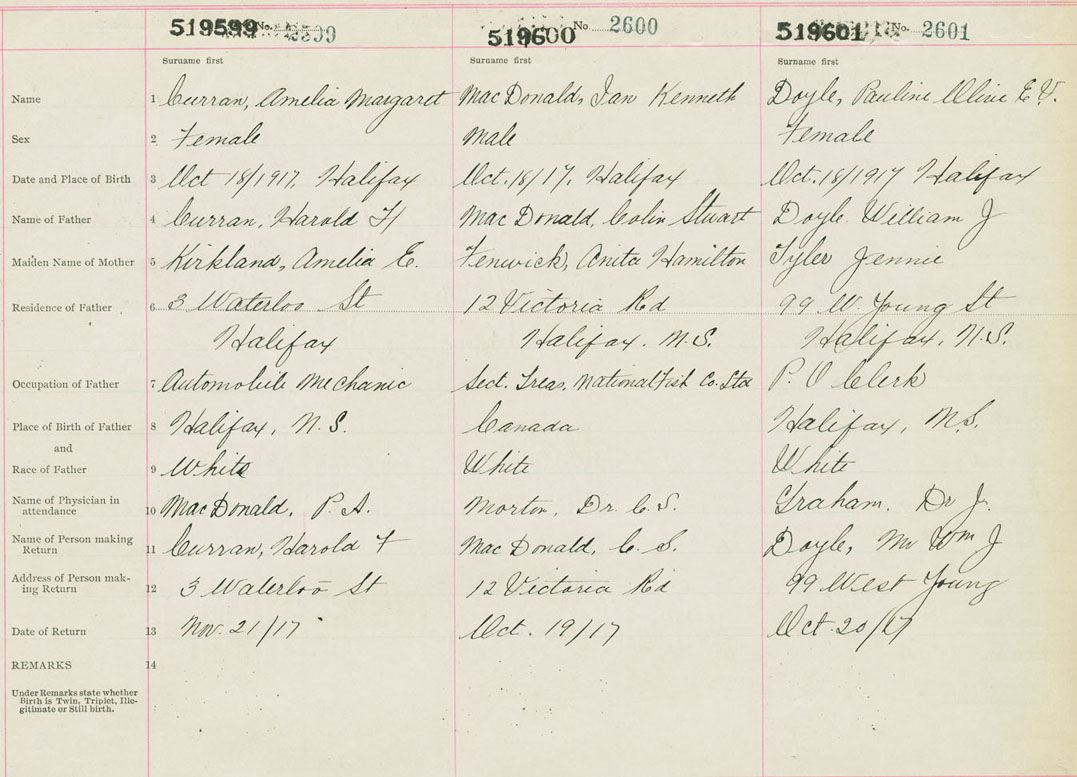 519599 No. 2599 519600 No. 2600 519601 No. 2601
Surname first Surname first Surname first
Name 1 Curran, Amelia Margaret MacDonald, Ian Kenneth Doyle, Pauline Olive E. V.
Sex 2 Female Male Female
Date and Place of Birth 3 Oct 18/1917, Halifax Oct. 18/17, Halifax Oct. 18/1917 Halifax
Name of Father 4 Curran, Harold F MacDonald, Colin Stuart Doyle William J
Maiden Name of Mother 5 Kirkland, Amelia E. Fenwick, Anita Hamilton Tyler Jennie
Residence of Father 6 3 Waterloo St 12 Victoria Rd 99 W. Young St
Halifax Halifax. N.S. Halifax, N.S.
Occupation of Father 7 Automobile Mechanic Sect. Treas, National Fish Co. Ltd P. O Clerk
Place of Birth of Father 8 Halifax, N.S. Canada Halifax, N.S.
and
Race of Father 9 White White White
Name of Physician in
attendance 10 MacDonald, P. A. Morton, Dr. C. S. Graham. Dr J.
Name of Person making
Return 11 Curran, Harold F MacDonald, C. S. Doyle, Mr Wm J
Address of Person mak-
ing Return 12 3 Waterloo St 12 Victoria Rd 99 West Young
Date of Return 13 Nov. 21/17 Oct. 19/17 Oct. 20/17
REMARKS 14
Under Remarks state whether
Birth is Twin, Triplet, Ille-
gitimate or Still birth.